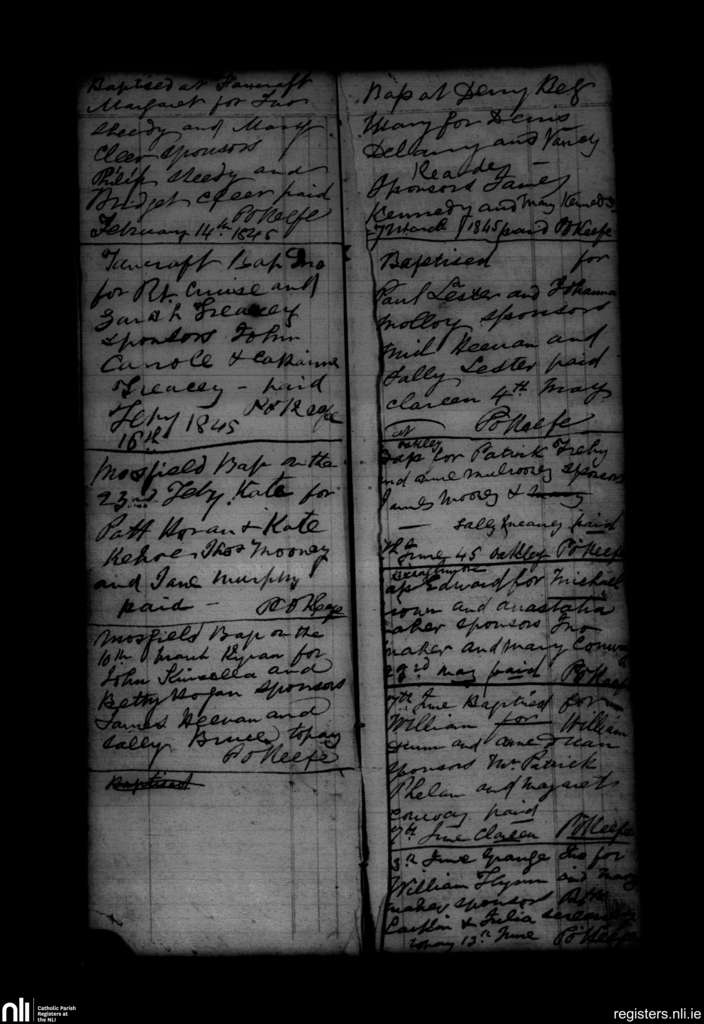 Baptised at
Margaret for Jno
Sheedy and Mary
Cleer sponsors
Philip Sheedy and
Bridget Cleer paid
February 14th 1845 P O Keefe
Bap Jno
for Rt. Cruise and
Sarah Treacey
sponsors John
Carrole & Catharine
Treacey - paid
Feby 1845 P O Keefe
16th
Mossfield Bap on the
23rd Feby. Kate for
Patt Horan & Kate
Kehoe Thos Mooney
and Jane Murphy
paid - P O Keefe
Mossfield Bap on the
10th March Kyran for
John Kinsella and
Betty Hogan Sponsors
James Heevan and
Sally Bruen to pay
P O Keefe
Baptised
Bap at Derry Beg
Mary for Denis
Delaney and
Sponsors James
Kennedy and Mary Kennedy
7 March 1845 paid P O Keefe
Baptised for
Paul Lester and Johanna
Molloy sponsors
Heevan and
Sally Lester paid
Clareen 4th May
P O Keefe
at Oakley
Bap for Patrick
and Anne Mulrooney sponsors
James Mooney &
- Sally paid
7th June 45 Oakley P O Keefe
Bap Edward for Michael
and Anastatia
Maher sponsors Jno
Maher and Mary Conway
23rd May paid P O Keefe
7th June Baptised for
William for William
and Anne
sponsors Mr. Patrick
Phelan and Margaret
Conway paid
7th June Clareen P O Keefe
June Grange Jno for
William Flynn and Mary
Maher sponsors
& Julia
to pay 13th June P O Keefe
nli
Catholic Parish
Registers at
the NLI
registers.nli.ie